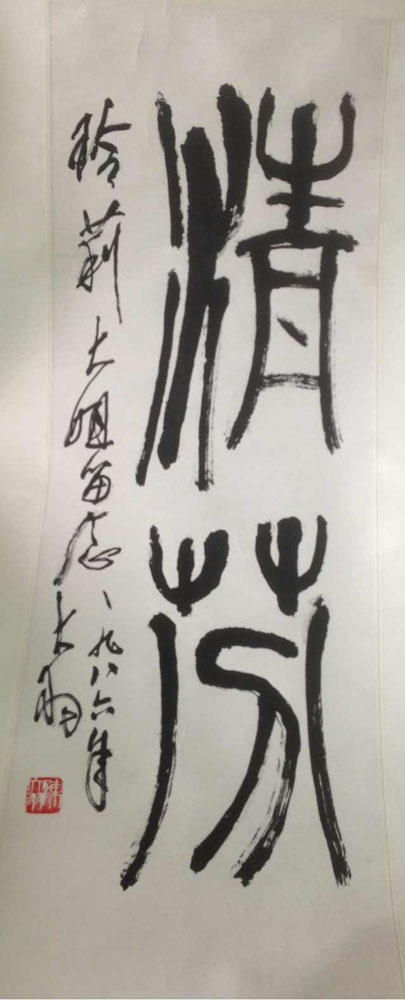 清芬
玲莉大姐留念
一九八六年
大羽